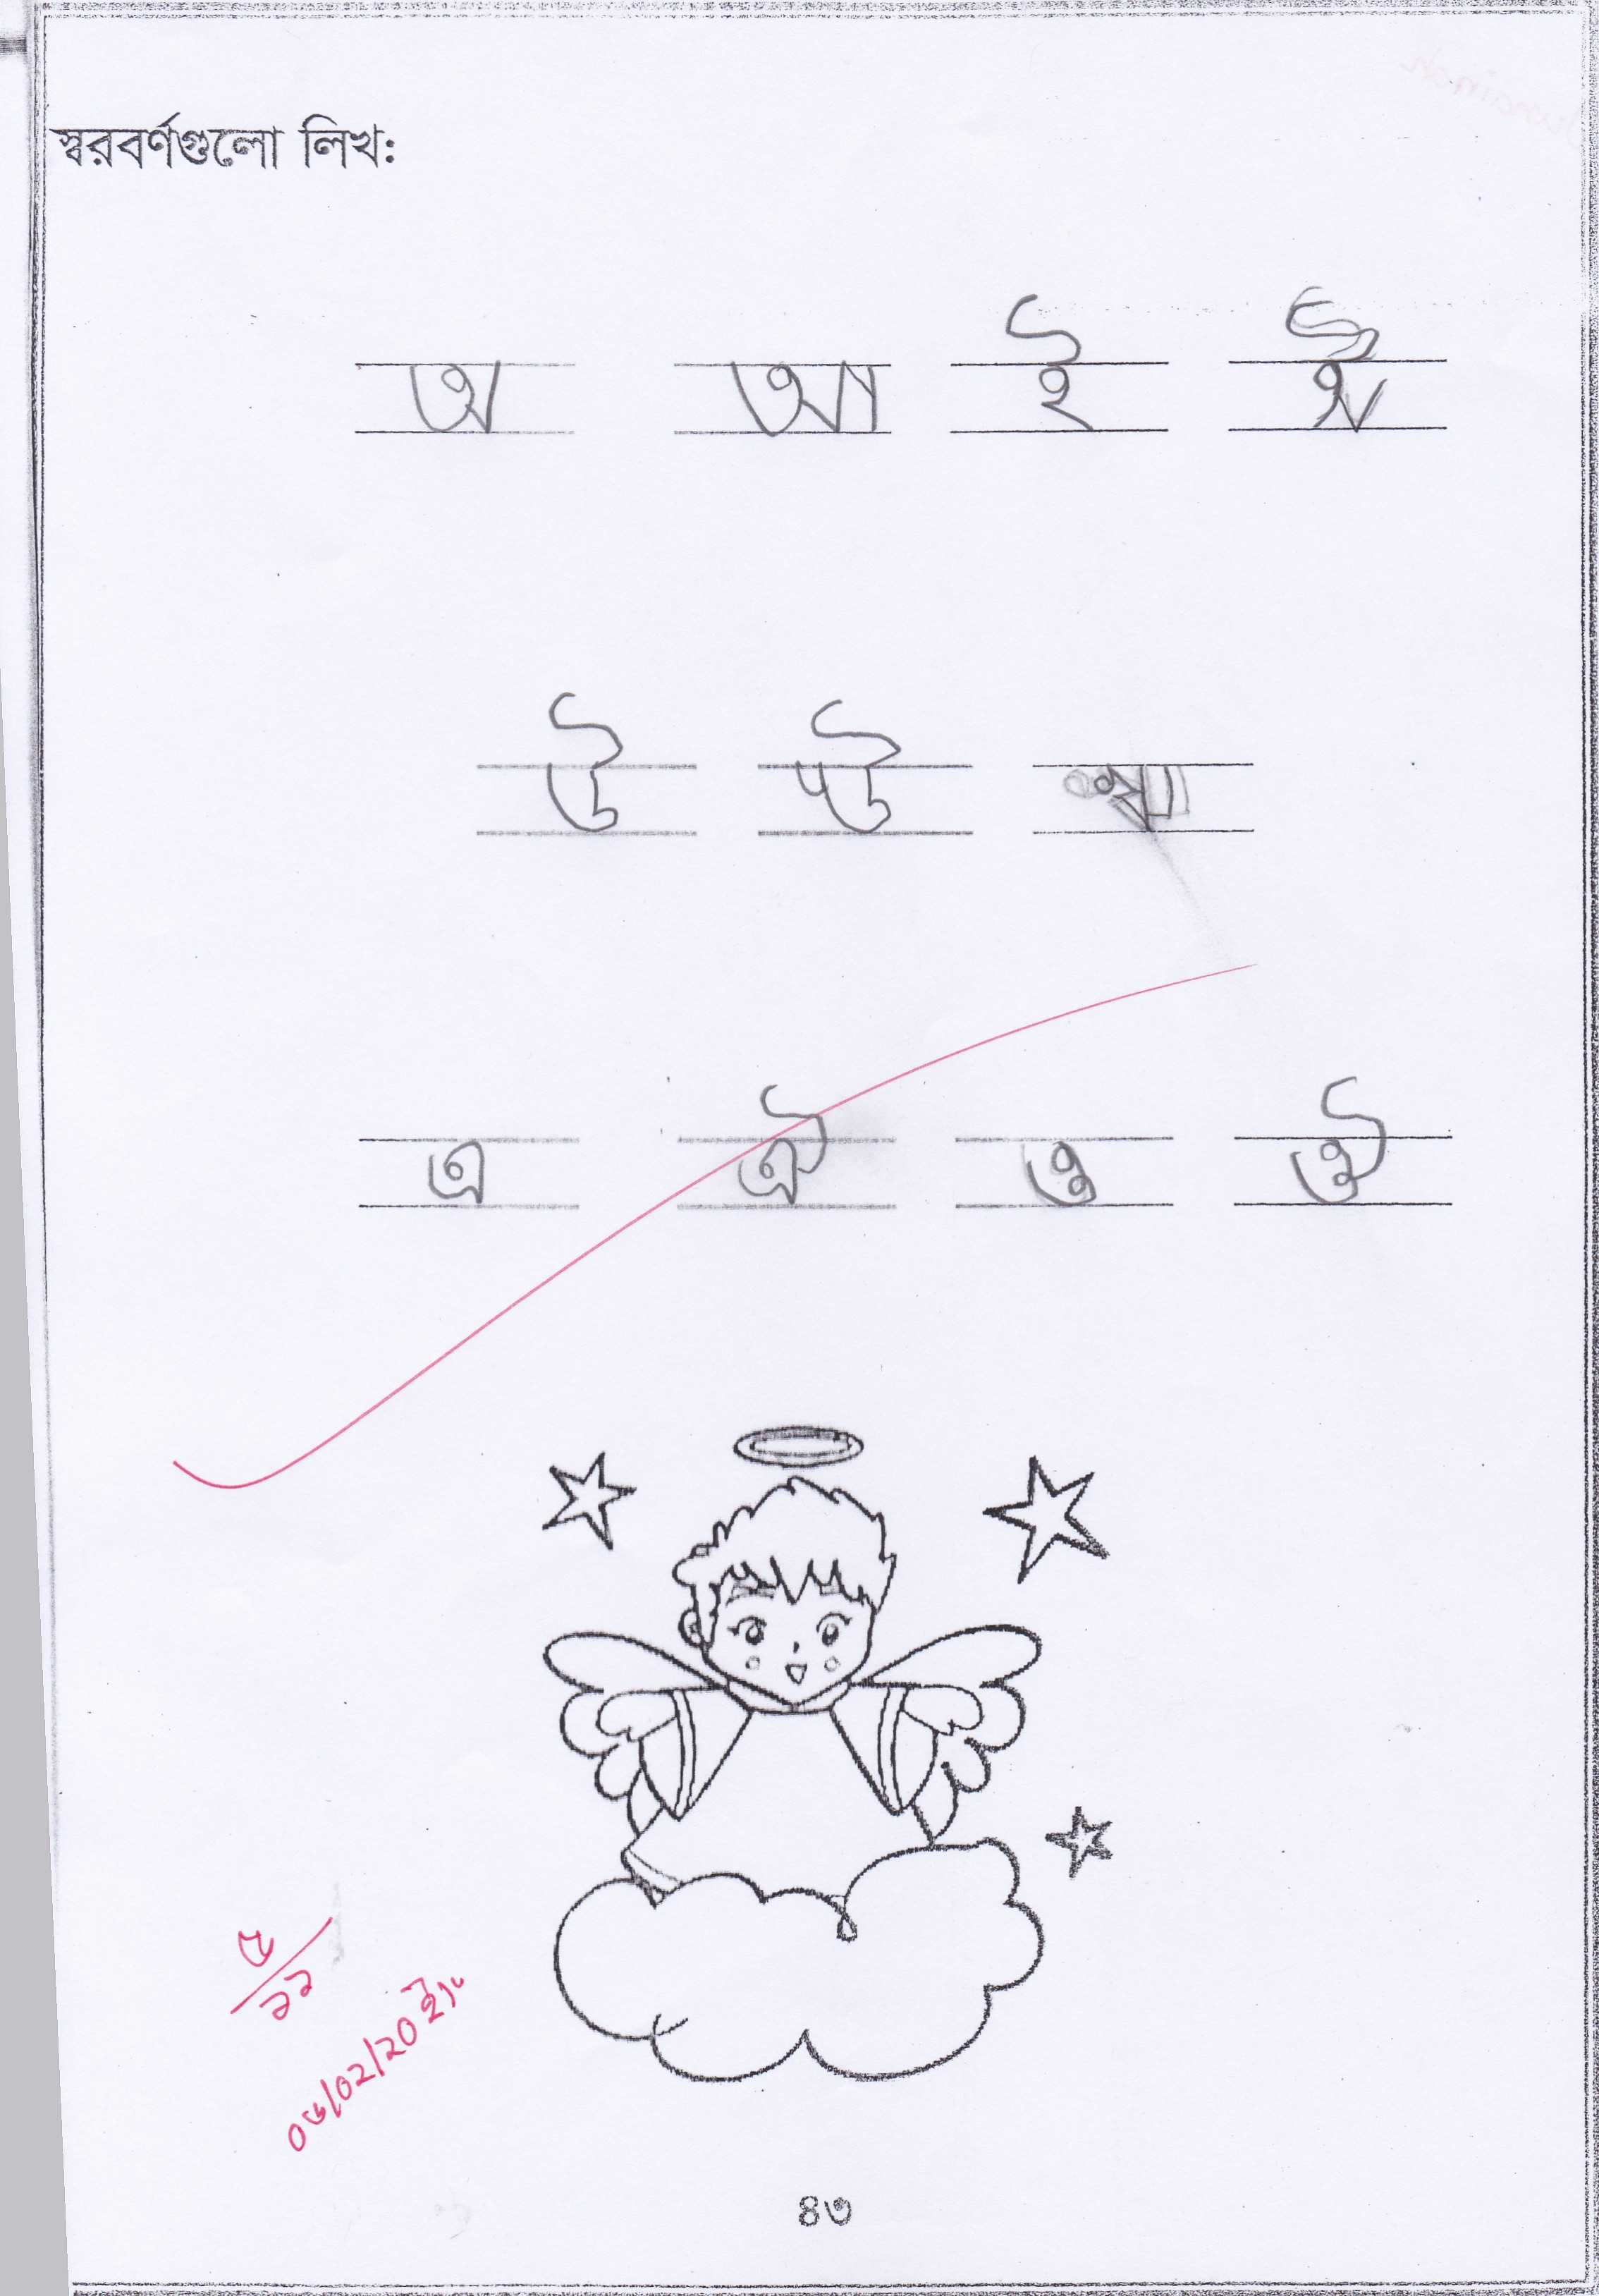 স্বরবর্ণগুলো লিখ:
অ আ ই ঈ
উ ঊ ঋ
এ ঐ ও ঔ
১১
০৬/০২/২০ইং
৪৩